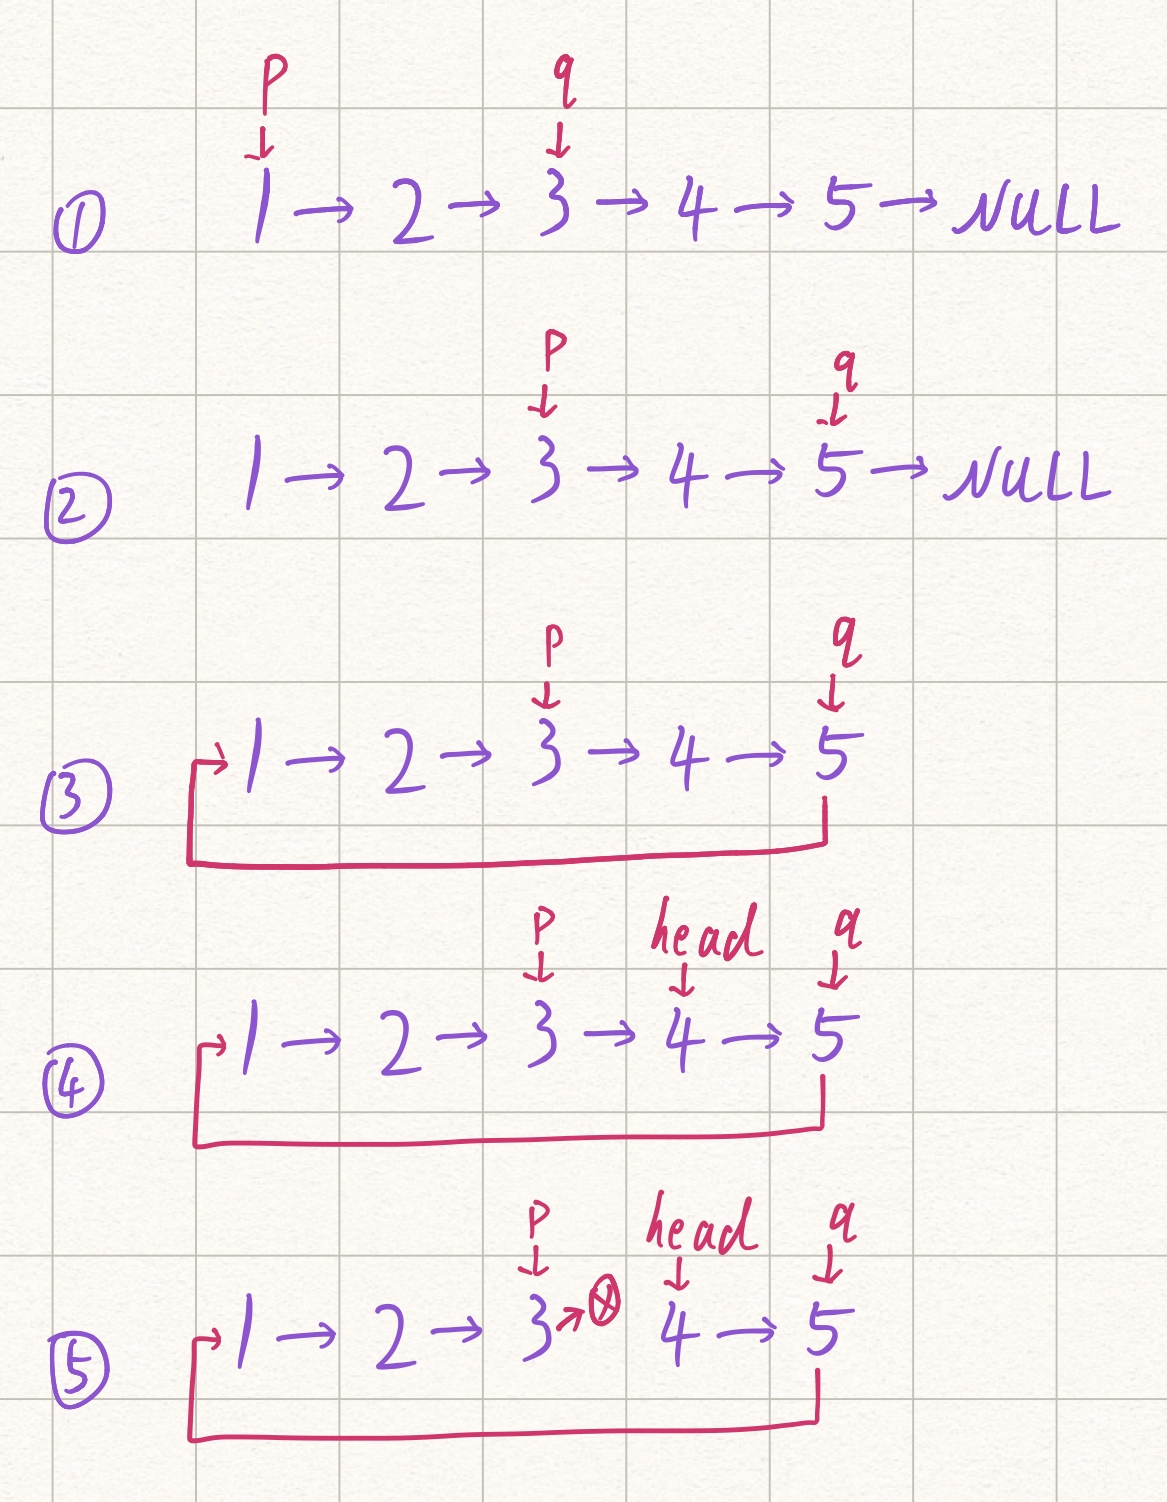 p q
① 1 → 2 → 3 → 4 → 5 → NULL
p q
② 1 → 2 → 3 → 4 → 5 → NULL
p q
③ 1 → 2 → 3 → 4 → 5
p head q
④ 1 → 2 → 3 → 4 → 5
p head q
⑤ 1 → 2 → 3 → ⊗ 4 → 5